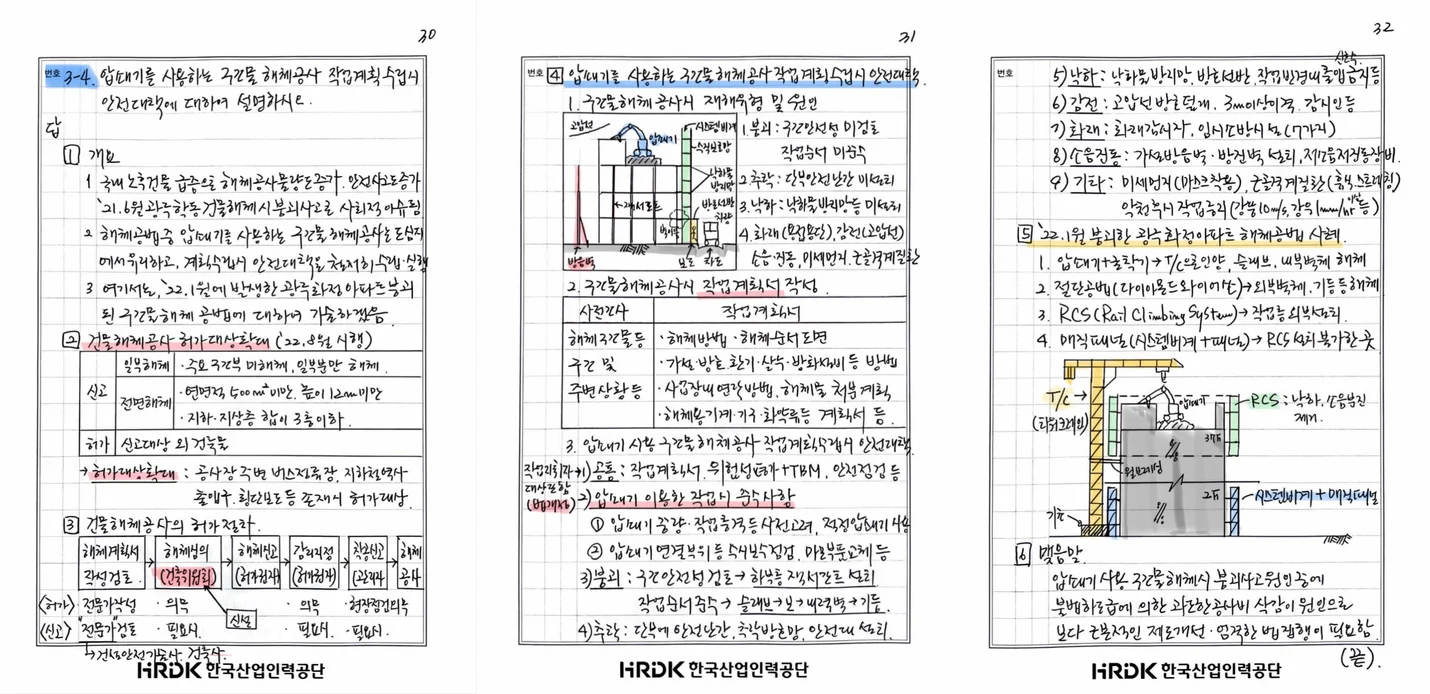 30
번호 3-4. 압쇄기를 사용하는 구조물 해체공사 작업계획 수립시
안전대책에 대하여 설명하시오.
답
1 개요
1 국내 노후건물 급증으로 해체공사물량도 증가, 안전사고도 증가
'21.6월 광주학동 건물해체시 붕괴사고로 사회적 이슈됨
2 해체공법중 압쇄기를 사용하는 구조물 해체공사는 도심지
에서 유리하고, 계획수립시 안전대책을 철저히 수립·실행
3 여기서는, '22.1월에 발생한 광주화정아파트 붕괴
된 구조물 해체 공법에 대하여 기술하겠음.
2 건물해체공사 허가대상확대 ('22.8월 시행)
신고
일부해체 · 주요구조부 미해체, 일부분만 해체.
전면해체 · 연면적 500m² 미만, 높이 12m미만
· 지하·지상층 합이 3층이하.
허가 신고대상 외 건축물
→ 허가대상확대 : 공사장 주변 버스정류장, 지하철역사
출입구, 횡단보도등 존재시 허가대상.
3 건물해체공사의 허가절차.
해체계획서 작성검토. → 해체심의 (건축위원회) → 해체신고 (허가권자) → 감리지정 (허가권자) → 착공신고 (관리자) → 해체공사
신설
<허가> · 전문가작성 · 의무 · 의무 · 현장점검의무
<신고> · "전문가"검토 · 필요시. · 필요시. · 필요시.
↳ 건설안전기술사. 건축사.
HRDK 한국산업인력공단
31
번호 4 압쇄기를 사용하는 구조물해체공사 작업계획수립시 안전대책.
1. 구조물해체 공사시 재해유형 및 원인
고압선
압쇄기
시스템비계
수직보호망
낙하물
방지망
방호선반
차량
잭서포트
방음벽
보도
차도
1. 붕괴 : 구조안전성 미검토
작업순서 미준수
2. 추락 : 단부안전난간 미설치
3. 낙하 : 낙하물방지망등 미설치
4. 화재(용접용단), 감전(고압선)
소음·진동, 미세먼지, 근골격계질환
2. 구조물해체공사시 작업계획서 작성.
사전조사 작업계획서
해체구조물 등
구조 및
주변상황 등
· 해체방법 · 해체순서 도면
· 가설·방호·환기·살수·방화설비 등 방법
· 사업장내 연락방법, 해체물 처분계획
· 해체용기계·기구 화약류등 계획서 등.
3. 압쇄기 사용 구조물 해체공사 작업계획수립시 안전대책.
작업지휘자
대상포함
(법개정)
1) 공통 : 작업계획서, 위험성평가+TBM, 안전점검 등
2) 압쇄기 이용한 작업시 준수사항
① 압쇄기 중량·작업충격 등 사전고려, 적정압쇄기 사용
② 압쇄기 연결부위 등 수시보수점검, 마모부품교체 등
3) 붕괴 : 구조안전성 검토 → 하부층 잭서포트 설치
작업순서 준수 → 슬래브→보→내력벽→기둥.
4) 추락 : 단부에 안전난간, 추락방호망, 안전대 설치.
HRDK 한국산업인력공단
32
번호
신호수
5) 낙하 : 낙하물방지망, 방호선반, 작업반경내 출입금지등
6) 감전 : 고압선 방호덮개, 3m이상이격, 감시인 등
7) 화재 : 화재감시자, 임시소방시설(7가지)
8) 소음진동 : 가설방음벽·방진벽 설치, 저소음저진동장비.
9) 기타 : 미세먼지(마스크착용), 근골격계질환(휴식, 스트레칭)
악천후시 작업중지 (강풍 10m/s, 강우 1mm/hr 이상 등)
5 '22.1월 붕괴한 광주화정아파트 해체공법 사례.
1. 압쇄기+굴착기 → T/C으로 인양, 슬래브, 내부벽체 해체
2. 절단공법(다이아몬드와이어쏘) → 외부벽체·기둥 등 해체
3. RCS(Rail Climbing System) → 작업층 외부설치.
4. 매직패널(시스템비계+패널) → RCS 설치 불가한 곳
T/C
(타워크레인)
압쇄기
RCS : 낙하, 소음분진
제거.
37F
월브레싱
2F
시스템비계 + 매직패널
기초
6 맺음말.
압쇄기 사용 구조물해체시 붕괴사고원인 중에
불법하도급에 의한 과도한공사비 삭감이 원인으로
보다 근본적인 제도개선·엄격한 법집행이 필요함.
(끝).
HRDK 한국산업인력공단